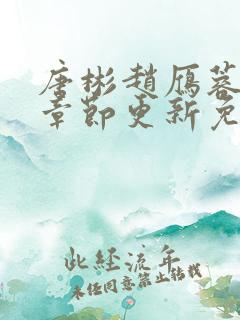 唐彬趙雁蓉
章節更新免
此経流年
未经同意禁止转载